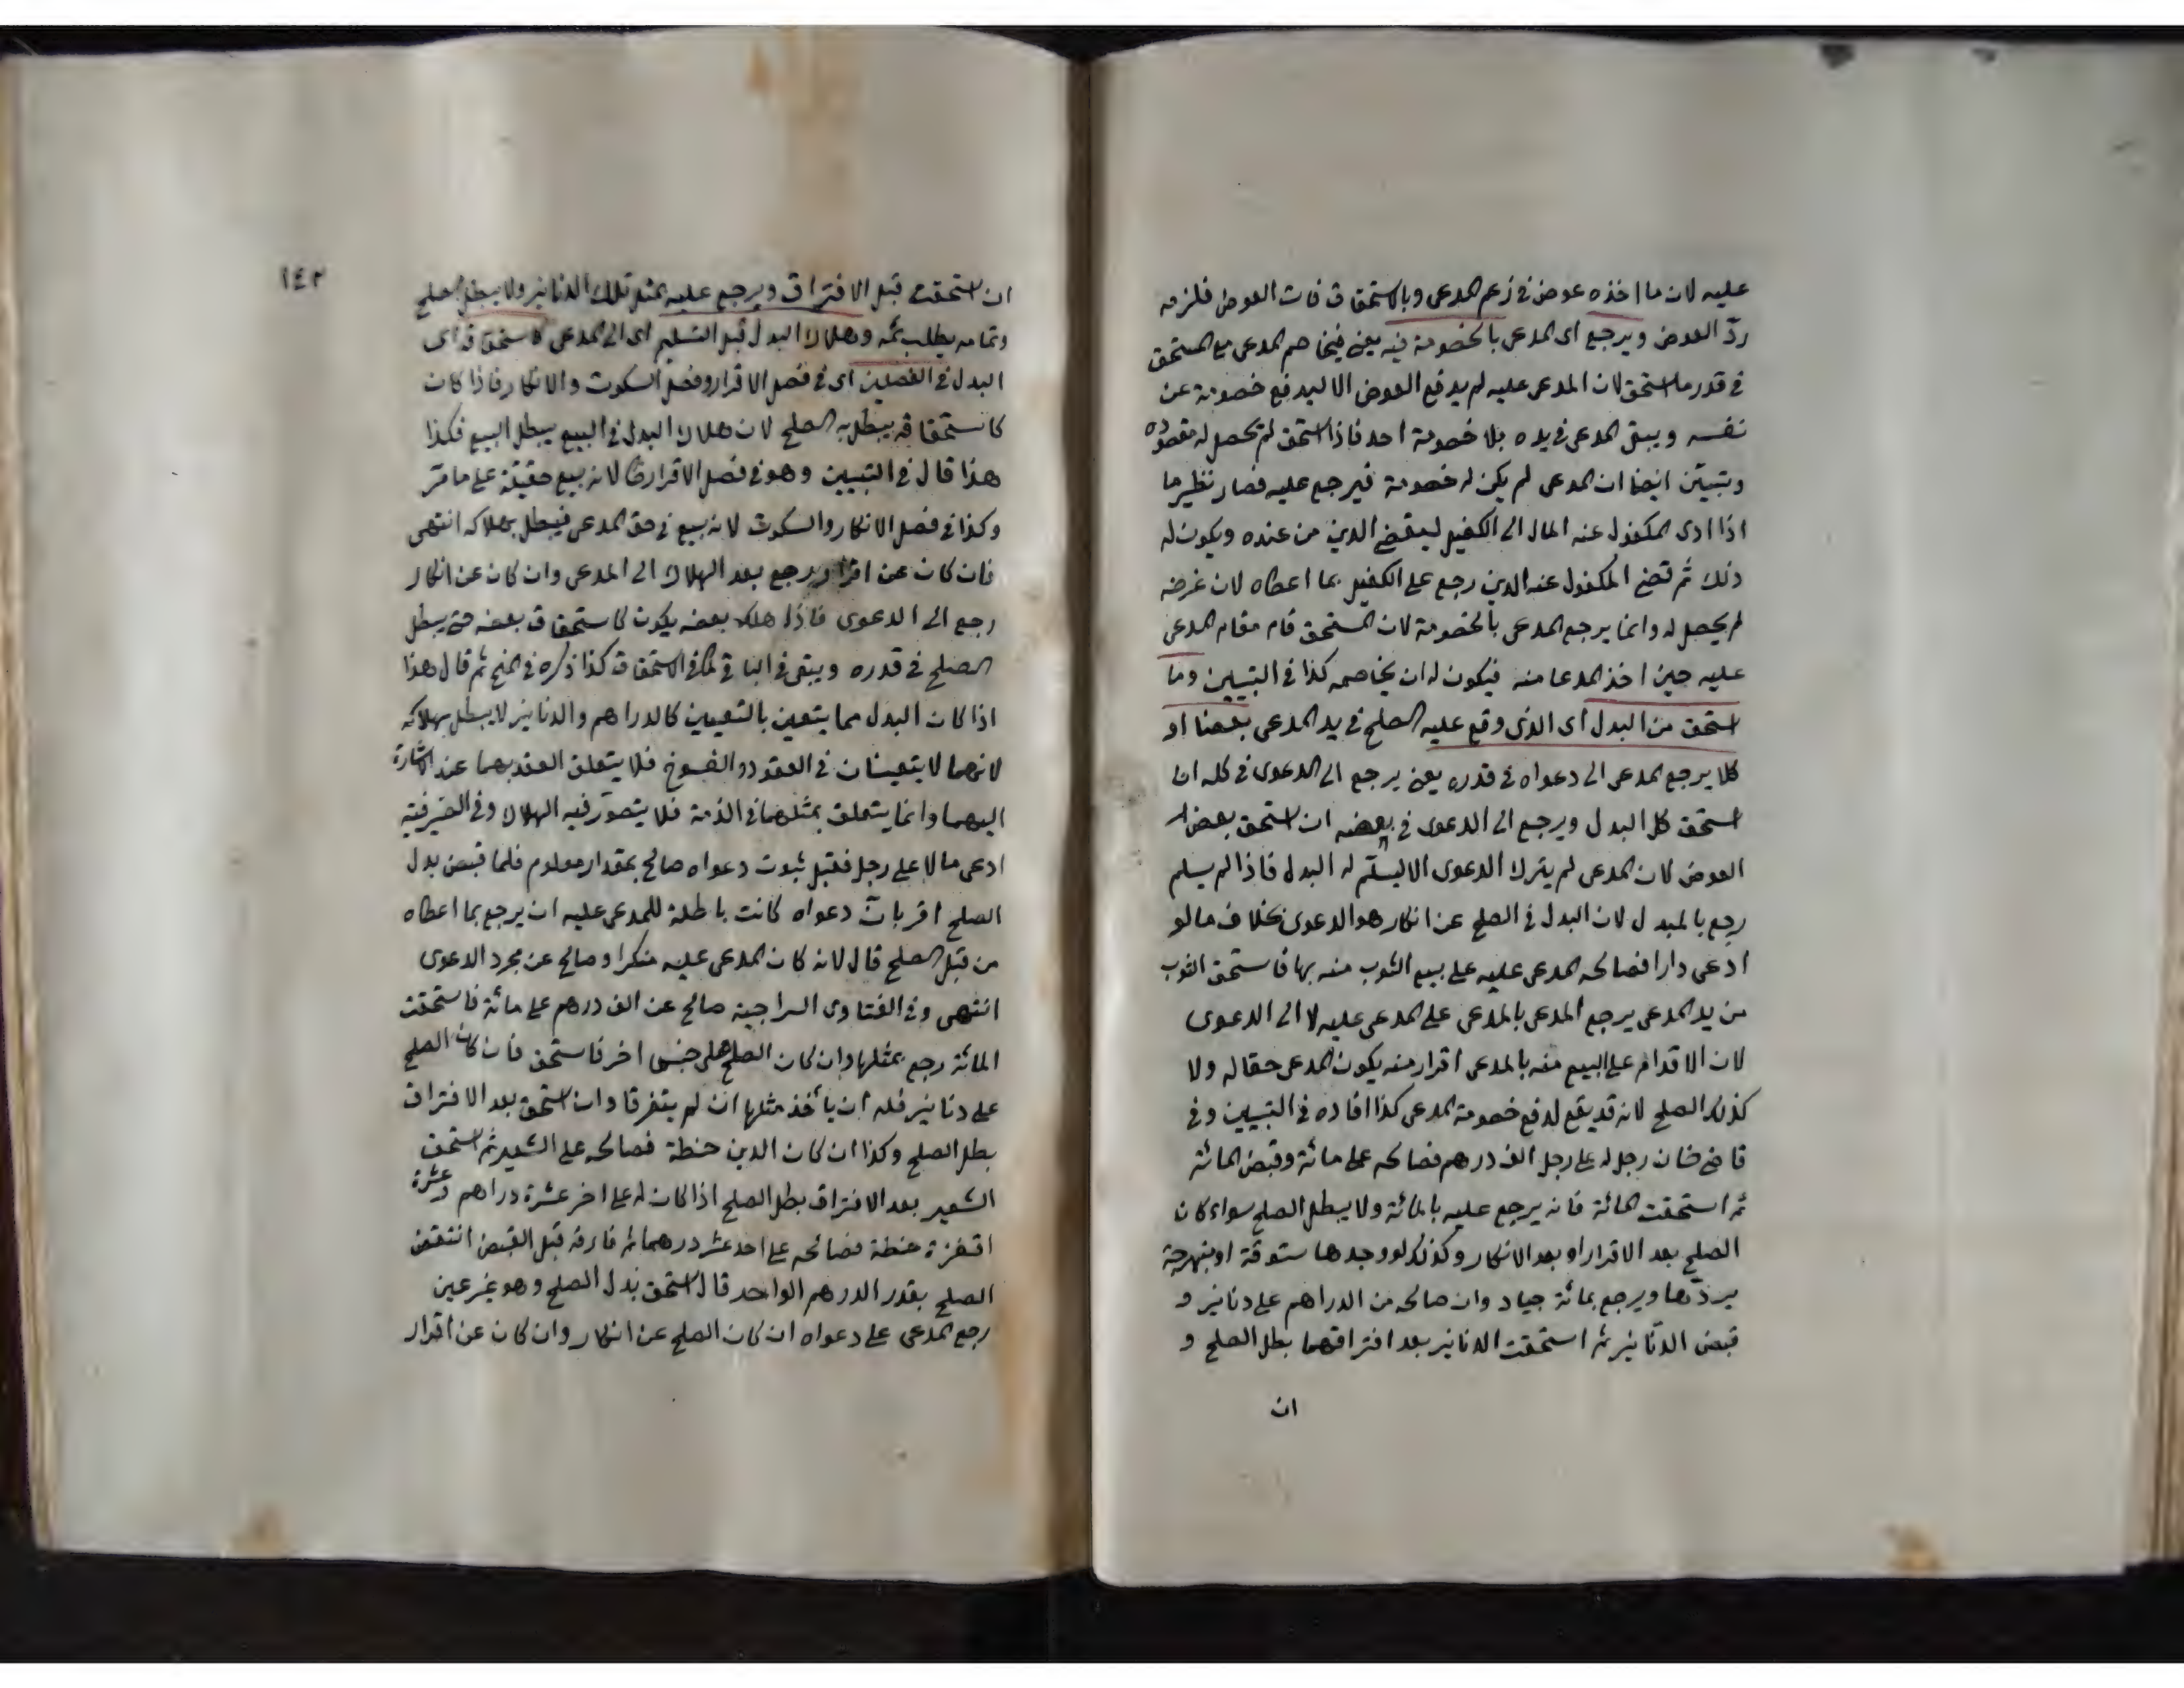 عليه لان ما اخذه عوض في زعم المدعى وبالاستحقاق فات العوض فلزمه
ردّ العوض ويرجع اى المدعى بالخصومة فيه يعنى فيخاصم المدعى مع المستحق
في قدر ما استحق لان المدعى عليه لم يدفع العوض الا ليدفع خصومة عن
نفسه ويبقى المدعى في يده بلا خصومة احد فاذا استحق لم يحصل له مقصوده
وتبيّن ايضا ان المدعى لم يكن له خصومة فيرجع عليه فصار نظير ما
اذا ادى المكفول عنه المال الى الكفيل ليقضى الدين من عنده ويكون له
ذلك ثم قضى المكفول عنه الدين رجع على الكفيل بما اعطاه لان غرضه
لم يحصل له وانما يرجع المدعى بالخصومة لان المستحق قام مقام المدعى
عليه حين اخذ المدعا منه فيكون له ان يخاصمه كذا في التبيين وما
استحق من البدل اى الذى وقع عليه الصلح في يد المدعى بعضا او
كلا يرجع المدعى الى دعواه في قدره يعنى يرجع الى الدعوى في كله ان
استحق كل البدل ويرجع الى الدعوى في بعضه ان استحق بعض
العوض لان المدعى لم يترك الدعوى الا ليسلّم له البدل فاذا لم يسلم
رجع بالمبدل لان البدل في الصلح عن انكار هو الدعوى بخلاف ما لو
ادعى دارا فصالحه المدعى عليه على بيع الثوب منه بها فاستحق الثوب
من يد المدعى يرجع المدعى بالمدعى على المدعى عليه لا الى الدعوى
لان الاقدام على البيع منه بالمدعى اقرار منه يكون المدعى حقا له ولا
كذلك الصلح لانه قد يقع لدفع خصومة المدعى كذا افاده في التبيين وفي
قاضى خان رجل له على رجل الف درهم فصالحه على مائة وقبض المائة
ثم استحقت المائة فانه يرجع عليه بالمائة ولا يبطل الصلح سواء كان
الصلح بعد الاقرار او بعد الانكار وكذلك لو وجدها ستوقة او بنهرجة
يردّها ويرجع بمائة جياد وان صالحه من الدراهم على دنانير و
قبض الدنانير ثم استحقت الدنانير بعد افتراقهما بطل الصلح و
ان
١٤٢
ان استحقت قبل الافتراق ويرجع عليه بمثل تلك الدنانير ولا يبطل الصلح
وتمامه يطلب ثمه وهلاك البدل قبل التسليم اى الى المدعى كاستحقاقه اى
البدل في الفصلين اى في فصل الاقرار وفصل السكوت والانكار فاذا كان
كاستحقاقه يبطل به الصلح لان هلاك البدل في البيع يبطل البيع فكذا
هذا قال في التبيين وهو في فصل الاقرار لانه بيع حقيقة على ما مرّ
وكذا في فصل الانكار والسكوت لانه بيع في حق المدعى فيبطل بهلاكه انتهى
فان كان عن اقرار يرجع بعد الهلاك الى المدعى وان كان عن انكار
رجع الى الدعوى فاذا هلك بعضه يكون كاستحقاق بعضه حتى يبطل
الصلح في قدره ويبقى في الباقي كما في الاستحقاق كذا ذكره في المنح ثم قال هذا
اذا كان البدل مما يتعين بالتعيين كالدراهم والدنانير لا يبطل بهلاكه
لانهما لا يتعينان في العقود والفسوخ فلا يتعلق العقد بهما عند الاشارة
اليهما وانما يتعلق بمثلهما في الذمة فلا يتصوّر فيه الهلاك وفي الصيرفية
ادعى مالا على رجل فقبل ثبوت دعواه صالح بمقدار معلوم فلما قبض بدل
الصلح اقر بانّ دعواه كانت باطلة للمدعى عليه ان يرجع بما اعطاه
من قبل الصلح قال لانه كان المدعى عليه منكرا وصالح عن مجرد الدعوى
انتهى وفي الفتاوى السراجية صالح عن الف درهم على مائة فاستحقت
المائة رجع بمثلها وان كان الصلح على جنس اخر فاستحق فان كان الصلح
على دنانير فله ان يأخذ مثلها ان لم يتفرقا وان استحق بعد الافتراق
بطل الصلح وكذا ان كان الدين حنطة فصالحه على الشعير ثم استحق
الشعير بعد الافتراق بطل الصلح اذا كان له على اخر عشرة دراهم وعشرة
اقفزة حنطة فصالحه على احد عشر درهما ثم فارقه قبل القبض انتقض
الصلح بقدر الدرهم الواحد قال استحق بدل الصلح وهو غير عين
رجع المدعى على دعواه ان كان الصلح عن انكار وان كان عن اقرار